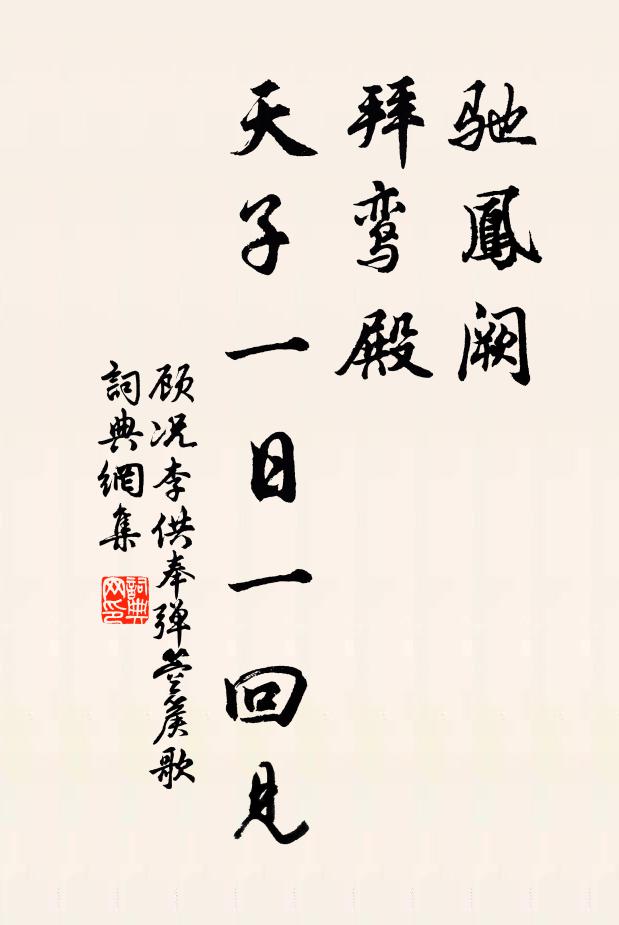 驰鳳阙
拜鸾殿
天子一日一回见
顾况李供奉弹箜篌歌
詞典網集
詞典
网印